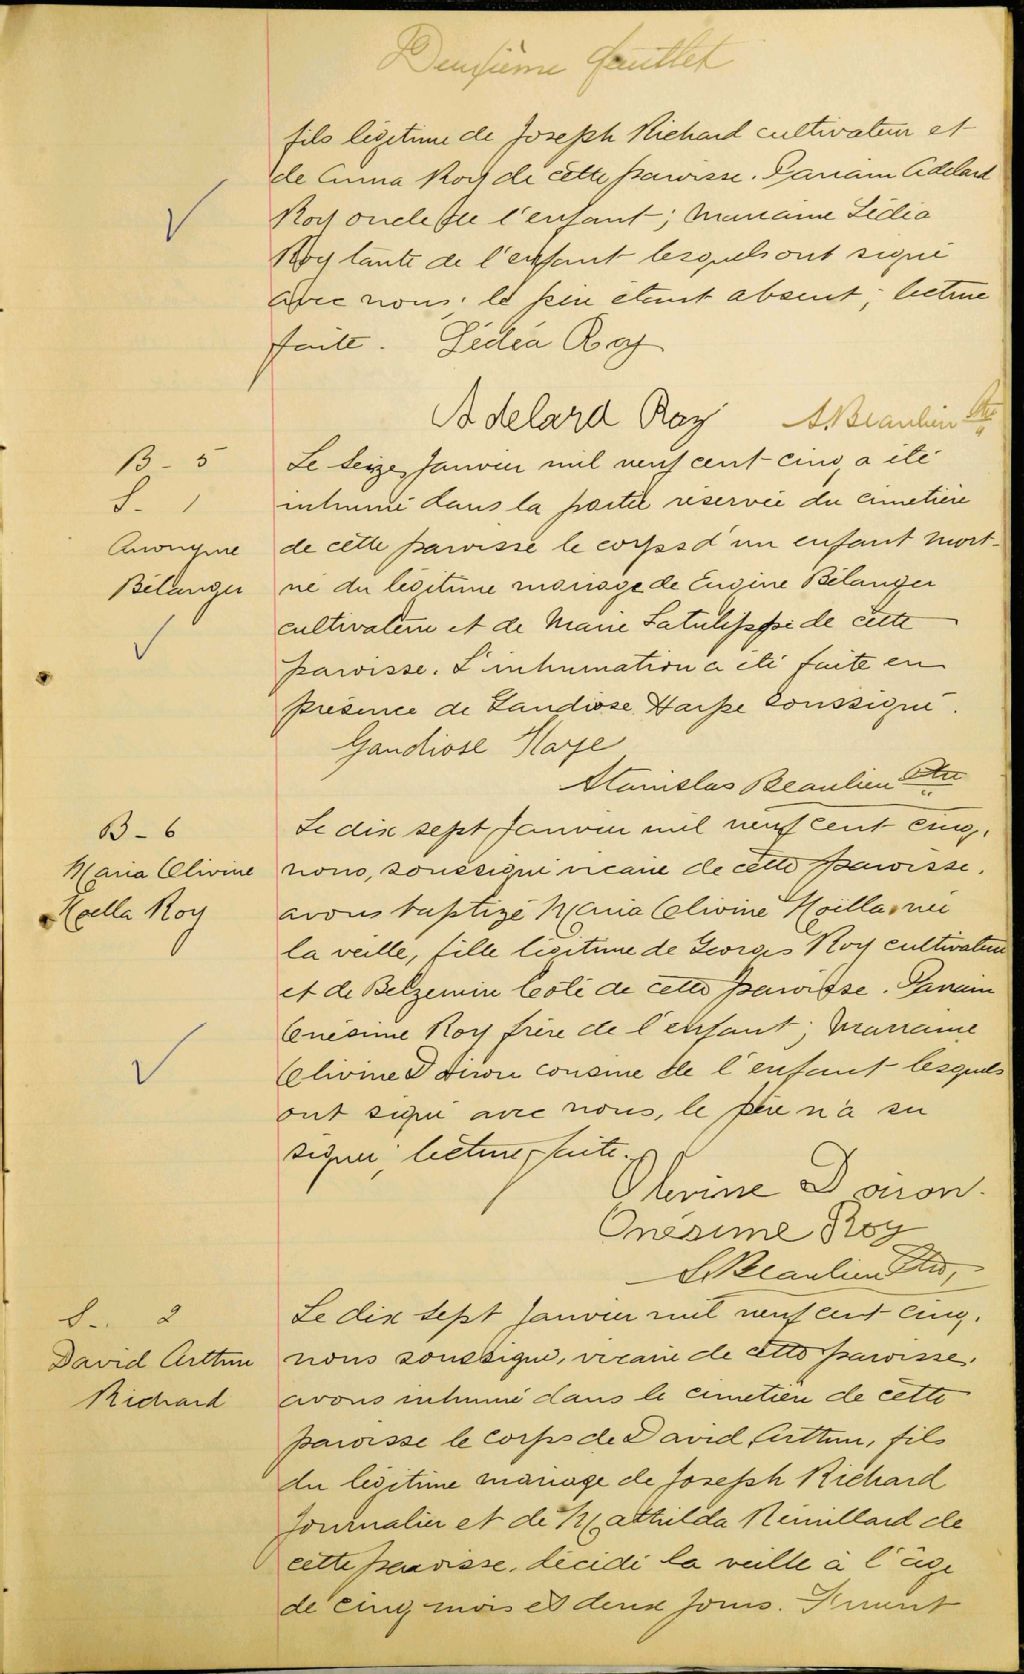 Deuxième feuillet
fils légitime de Joseph Richard cultivateur et
de Anna Roy de cette paroisse. Parrain Adelard
Roy oncle de l'enfant; marraine Lédia
Roy tante de l'enfant lesquels ont signé
avec nous; le père étant absent; lecture
faite. Lédéa Roy
Adelard Roy S. Beaulieu Ptre
B - 5
S - 1
Anonyme
Bélanger
Le seize Janvier mil neuf cent cinq a été
inhumé dans la partie réservée du cimetière
de cette paroisse le corps d'un enfant mort-
né du légitime mariage de Eugène Bélanger
cultivateur et de Marie Latulippe de cette
paroisse. L'inhumation a été faite en
présence de Gaudiose Harpe soussigné.
Gaudiose Harpe
Stanislas Beaulieu Ptre
B - 6
Maria Olivine
Noella Roy
Le dix sept Janvier mil neuf cent cinq,
nous, soussigné vicaire de cette paroisse,
avons baptizé Maria Olivine Noëlla née
la veille, fille légitime de Georges Roy cultivateur
et de Belzemire Coté de cette paroisse. Parrain
Onésime Roy frère de l'enfant; marraine
Olivine Doiron cousine de l'enfant lesquels
ont signé avec nous, le père n'a su
signer; lecture faite.
Olivine Doiron.
Onésime Roy
S. Beaulieu Ptre,
S - 2
David Arthur
Richard
Le dix sept Janvier mil neuf cent cinq,
nous soussigné, vicaire de cette paroisse,
avons inhumé dans le cimetière de cette
paroisse le corps de David Arthur, fils
du légitime mariage de Joseph Richard
Journalier et de Mathilda Rémillard de
cette paroisse, décédé la veille à l'âge
de cinq mois et deux jours. Furent